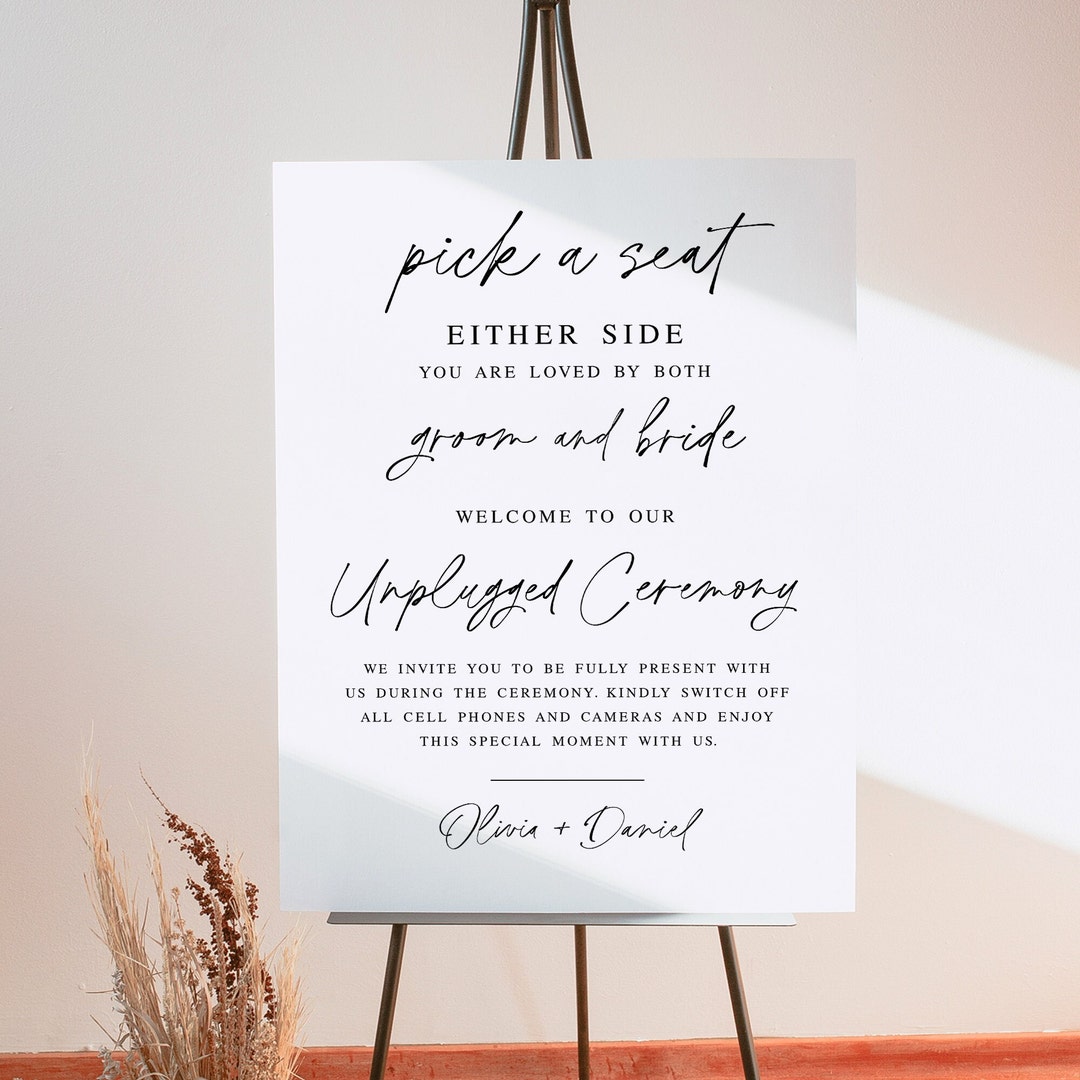 pick a seat
EITHER SIDE
YOU ARE LOVED BY BOTH
groom and bride
WELCOME TO OUR
Unplugged Ceremony
WE INVITE YOU TO BE FULLY PRESENT WITH
US DURING THE CEREMONY. KINDLY SWITCH OFF
ALL CELL PHONES AND CAMERAS AND ENJOY
THIS SPECIAL MOMENT WITH US.
Olivia + Daniel